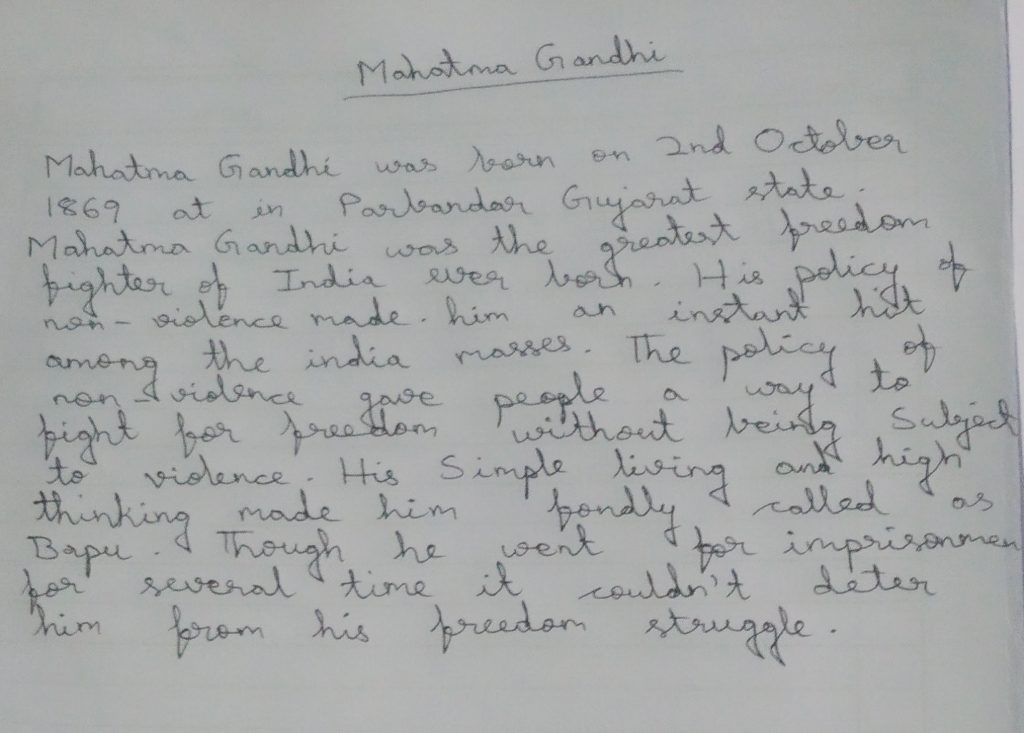 Mahatma Gandhi
Mahatma Gandhi was born on 2nd October
1869 at in Parbandar Gujarat state.
Mahatma Gandhi was the greatest freedom
fighter of India ever born. His policy of
non-violence made. him an instant hit
among the india masses. The policy of
non-violence gave people a way to
fight for freedom without being Subject
to violence. His Simple living and high
thinking made him fondly called as
Bapu. Though he went for imprisonmen
for several time it couldn't deter
him from his freedom struggle.